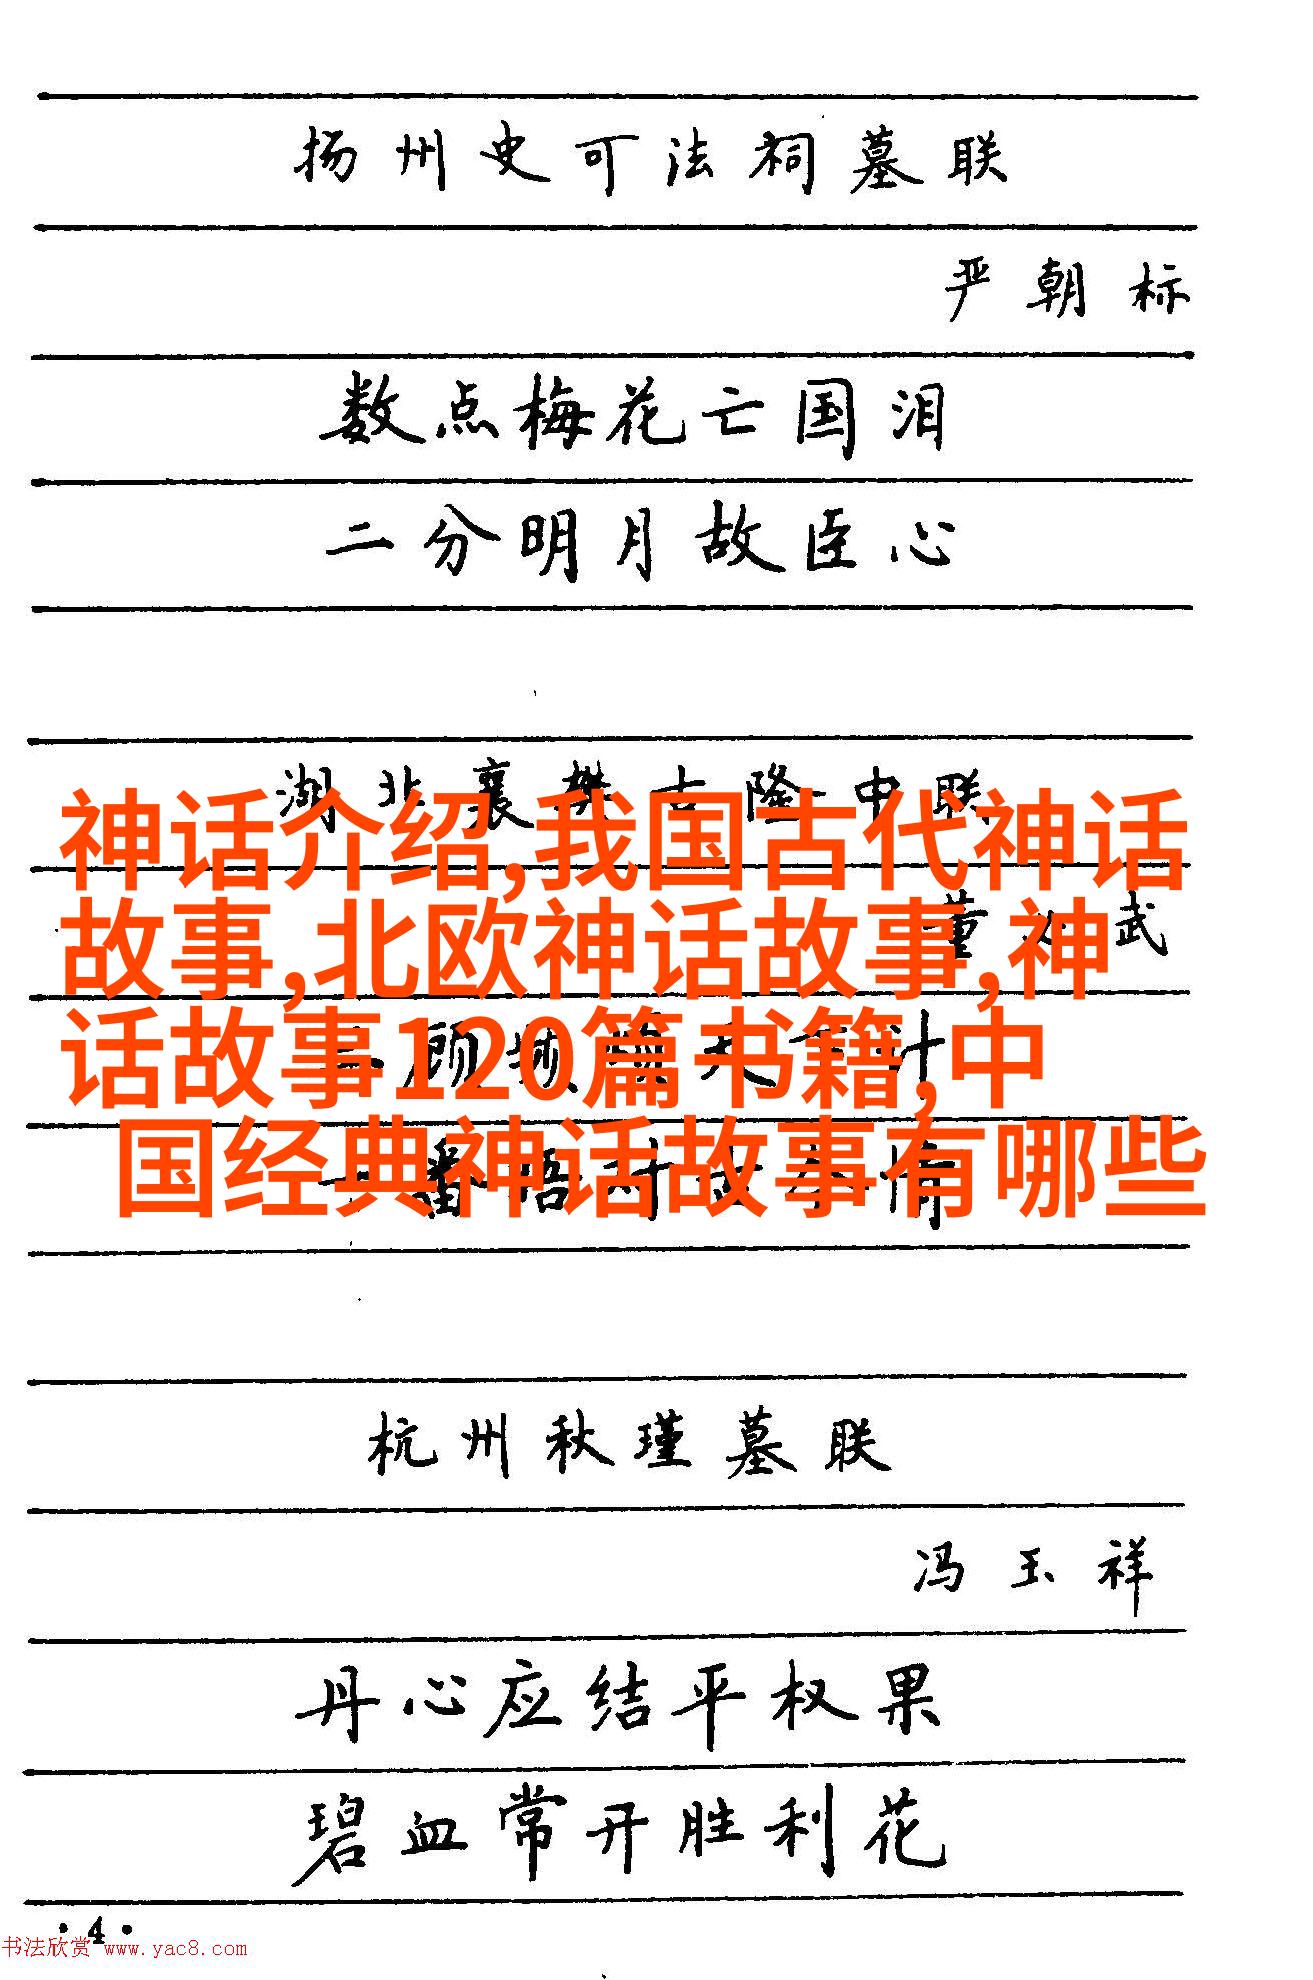 扬州史可法祠墓联
严朝标
数点梅花亡国泪
二分明月故臣心
湖北襄樊古隆中联
董 武
神话介绍,我国古代神话
故事,北欧神话故事,神
话故事120篇书籍,中
国经典神话故事有哪些
杭州秋瑾墓联
冯玉祥
丹心应结平权果
碧血常开胜利花
·4·
书法欣赏 www.yac8.com